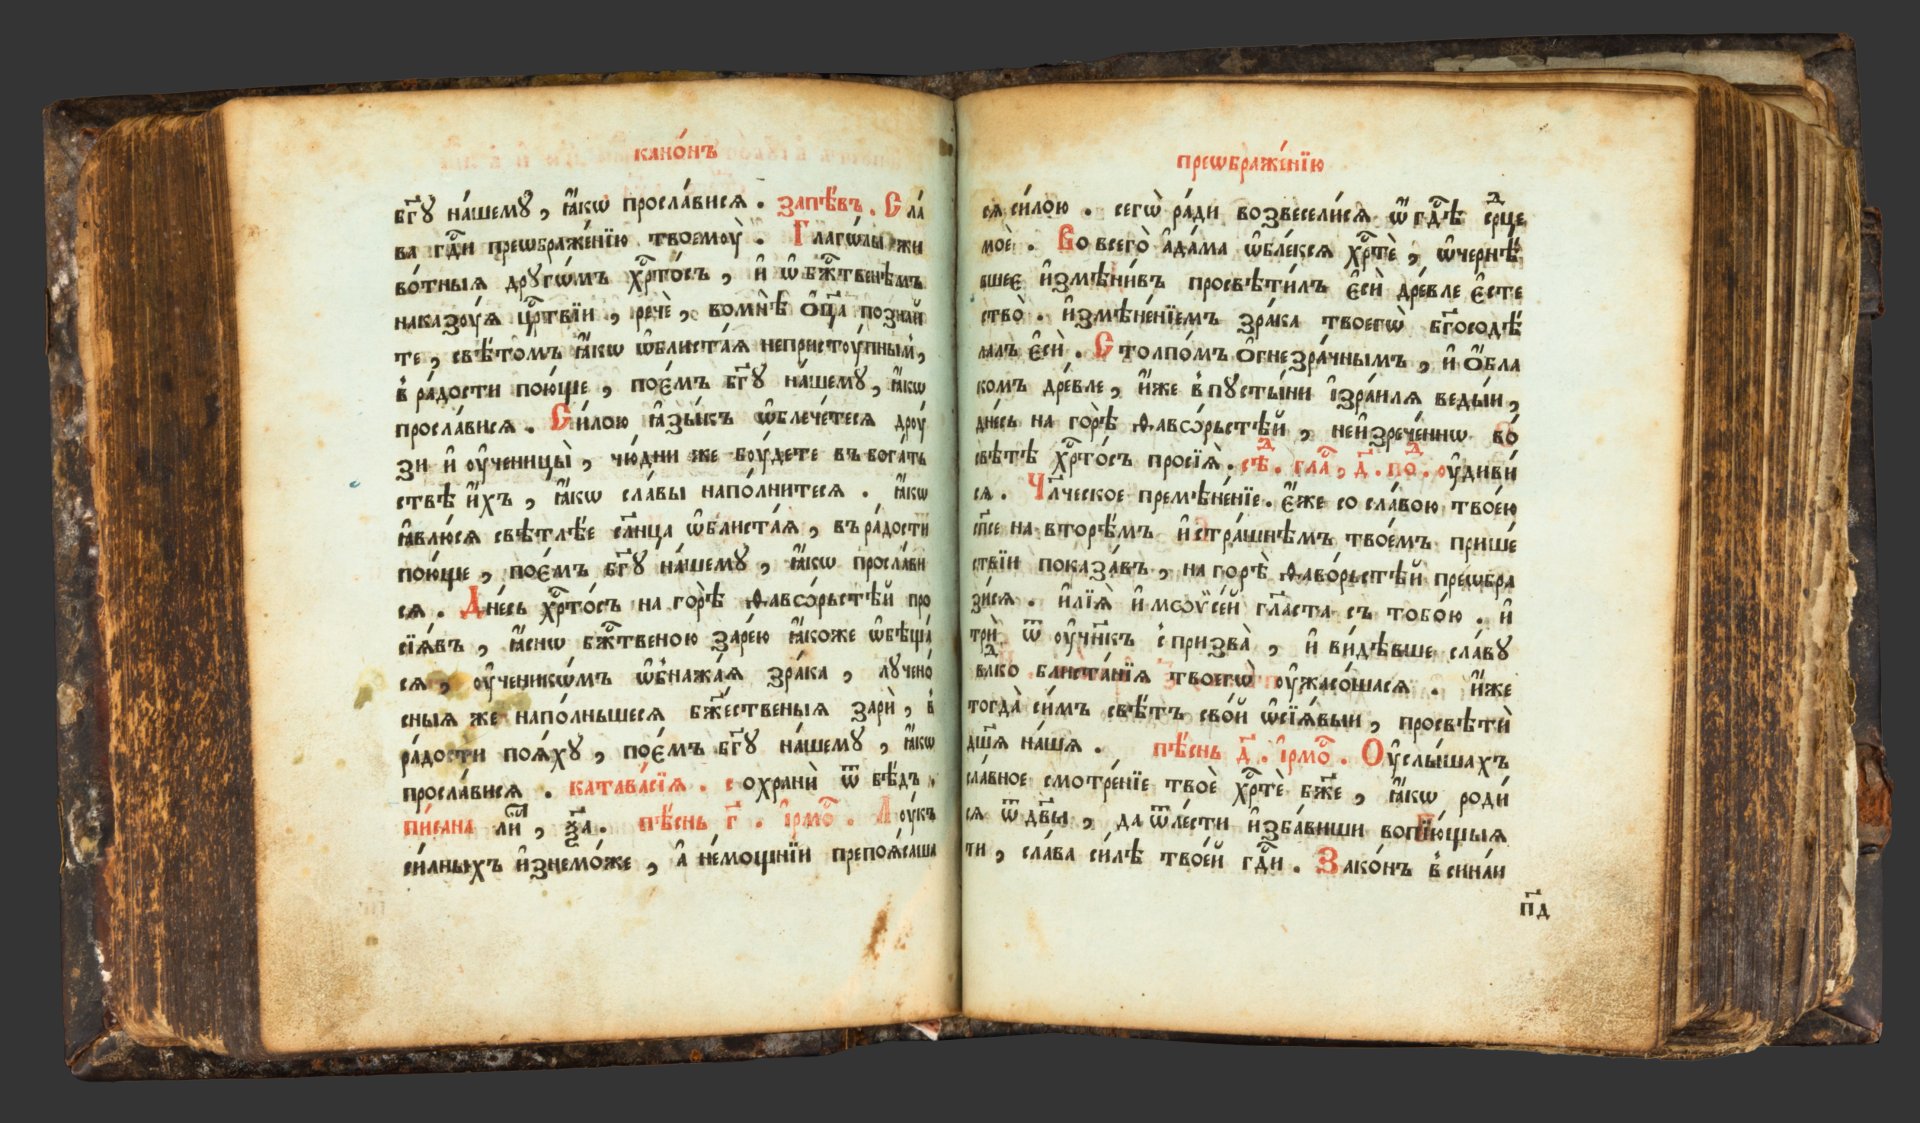 кано́нъ
бг҃ꙋ на́шемꙋ, ꙗ҆́кѡ просла́висѧ. запѣ́въ. Сла́
ва гдⷭ҇и преѡбраже́нїю твоемꙋ̀. Глаго́лы жи
во́тныѧ дрꙋгѡ́мъ хрⷭ҇то́съ, и҆ ѡ҆ бжⷭ҇твенѣмъ
наказꙋ́ѧ црⷭ҇твїи, рече̏, во мнѣ̀ ѻ҆ц҃а позна́й
те, свѣ́томъ ꙗ҆́кѡ ѡ҆блиста́ѧ непристꙋ́пным̾,
в̾ ра́дости пою́ще, пое́мъ бг҃ꙋ на́шемꙋ, ꙗ҆́кѡ
просла́висѧ. Си́лою ꙗ҆зы́къ ѡ҆блече́тесѧ дрꙋ́
зи и҆ ᲂу҆ченицы̀, чю́дни же бꙋ́дете въ бога́ть
ствѣ и҆́хъ, ꙗ҆́кѡ сла́вы напо́лнитесѧ. ꙗ҆́кѡ
ꙗ҆влю́сѧ свѣтлѣ́е сл҃нца ѡ҆блиста́ѧ, въ ра́дости
пою́ще, пое́мъ бг҃ꙋ на́шемꙋ, ꙗ҆́кѡ просла́ви
сѧ. Дне́сь хрⷭ҇то́съ на горѣ̀ ѳаво́рьстѣй про
сїѧ́въ, ꙗ҆́снѡ бжⷭ҇твеною заре́ю ꙗ҆́коже ѡ҆бѣща́
сѧ, ᲂу҆ченикѡ́мъ ѡ҆бнажа́ѧ зра́ка, лꙋчено́
сныѧ же напо́лньшесѧ бж҃ественыѧ зарѝ, в̾
ра́дости поѧ́хꙋ, пое́мъ бг҃ꙋ на́шемꙋ, ꙗ҆́кѡ
просла́висѧ. катава́сїѧ. сохранѝ ѿ бѣ́дъ.
пи́сана ли́, ѯ҃а. пѣ́снь г҃. і҆рмоⷭ҇. Лꙋ́къ
си́лныхъ и҆знемо́же, а҆ не́мощнїи препоѧ́саша
преѡбраже́нїю
сѧ си́лою. сегѡ̀ ра́ди возвесели́сѧ ѡ҆ гдⷭ҇ѣ срⷣце
моѐ. Во всего̀ а҆да́ма ѡ҆бле́ксѧ хрⷭ҇тѐ, ѡ҆чернѣ́
вшее и҆змѣни́въ просвѣти́лъ є҆сѝ дре́вле є҆сте
ство̀. и҆змѣне́нїемъ зра́ка твоегѡ̀ бг҃осодѣ́
лалъ є҆сѝ. Столпо́мъ ѻ҆гнезра́чнымъ, и҆ ѻ҆́бла
комъ дре́вле, и҆́же в̾ пꙋсты́ни і҆зра́илѧ веды́и,
дне́сь на горѣ̀ ѳаво́рьстѣй, неи҆зрече́ннѡ во́
свѣтѣ хрⷭ҇то́съ просїѧ̀. сѣⷣ. глаⷭ҇, д҃. поⷣ. ᲂу҆диви́
сѧ. Чл҃ческое премѣне́нїе. є҆́же со сла́вою твое́ю
сп҃се на вторѣ́мъ и҆ стра́шнѣмъ твое́мъ прише́
ствїи показа́въ, на горѣ̀ ѳаво́рьстѣй преѡбра
зи́сѧ. и҆лїѧ̀ и҆ мѡѷсе́й гл҃аста съ тобо́ю. и҆
трѝ ѿ ᲂу҆чн҃къ с̾призва̀, и҆ ви́дѣвше сла́вꙋ
влⷣко блиста́нїѧ твоегѡ̀ ᲂу҆жасо́шасѧ. и҆́же
тогда̀ си́мъ свѣ́тъ сво́й ѡ҆сїѧ́выи, просвѣтѝ
дш҃ѧ на́шѧ. пѣ́снь д҃. і҆рмоⷭ҇. Оу҆слы́шахъ
сла́вное смотре́нїе твоѐ хрⷭ҇тѐ бж҃е, ꙗ҆́кѡ роди́
сѧ ѿ дв҃ы, да ѿ ле́сти и҆зба́виши вопїю́щыѧ
ти, сла́ва си́лѣ твое́й гдⷭ҇и. Зако́нъ в̾ сина́и
п҃д